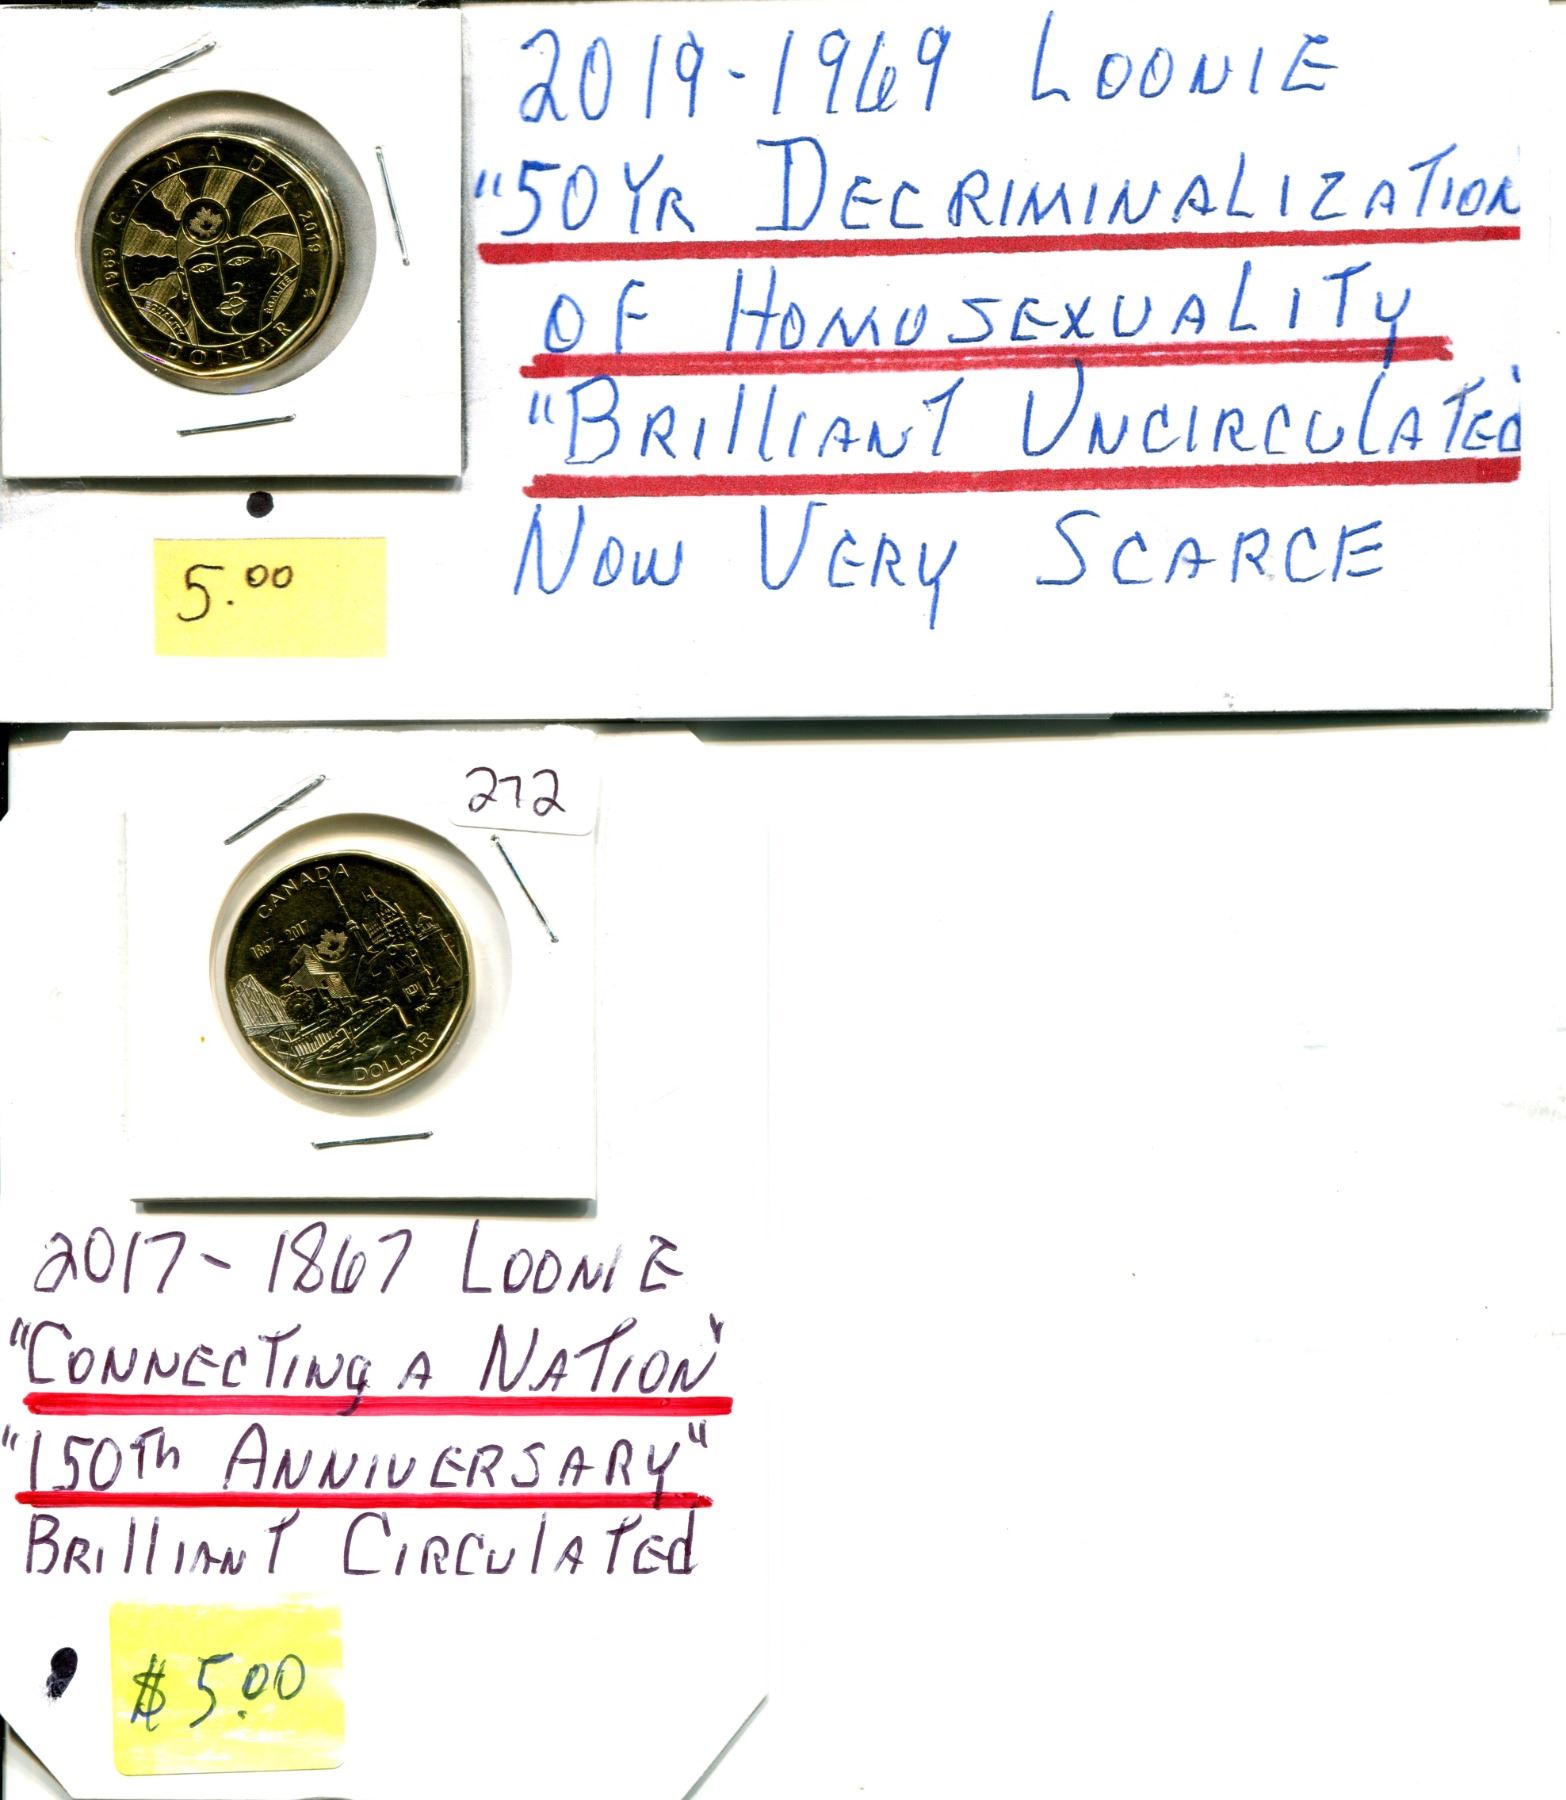 CANADA
1969
2019
EQUALITY
ÉGALITÉ
DOLLAR
2019-1969 LOONIE
"50 YR DECRIMINALIZATION
OF HOMOSEXUALITY
"BRILLIANT UNCIRCULATED"
NOW VERY SCARCE
5.00
272
CANADA
1867-2017
DOLLAR
2017-1867 LOONIE
"CONNECTING A NATION"
"150TH ANNIVERSARY"
BRILLIANT CIRCULATED
$5.00